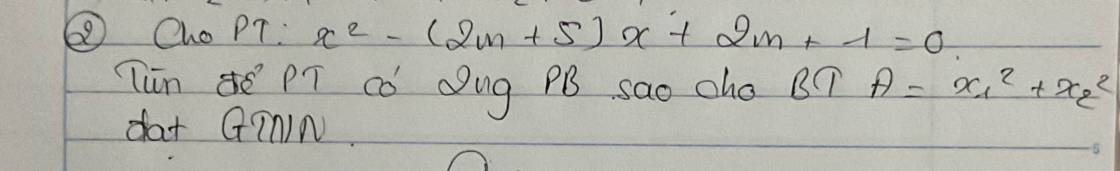 ② Cho PT: x² - (2m + 5)x + 2m + 1 = 0.
Tìm để PT có 2ng PB sao cho BT A = x₁² + x₂²
đạt GTNN.